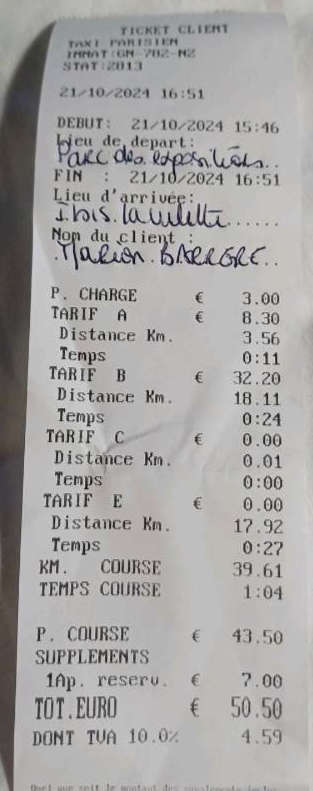 TICKET CLIENT
TAXI PARISIEN
IMMAT:GM-782-NZ
STAT:2013
21/10/2024 16:51
DEBUT: 21/10/2024 15:46
Lieu de depart:
Parc des expositions..
FIN : 21/10/2024 16:51
Lieu d'arrivée:
ibis. la villette......
Nom du client :
.Marion. BARRERE..
P. CHARGE € 3.00
TARIF A € 8.30
Distance Km. 3.56
Temps 0:11
TARIF B € 32.20
Distance Km. 18.11
Temps 0:24
TARIF C € 0.00
Distance Km. 0.01
Temps 0:00
TARIF E € 0.00
Distance Km. 17.92
Temps 0:27
KM. COURSE 39.61
TEMPS COURSE 1:04
P. COURSE € 43.50
SUPPLEMENTS
1Ap. reserv. € 7.00
TOT.EURO € 50.50
DONT TVA 10.0% 4.59
Quel que soit le montant des supplements